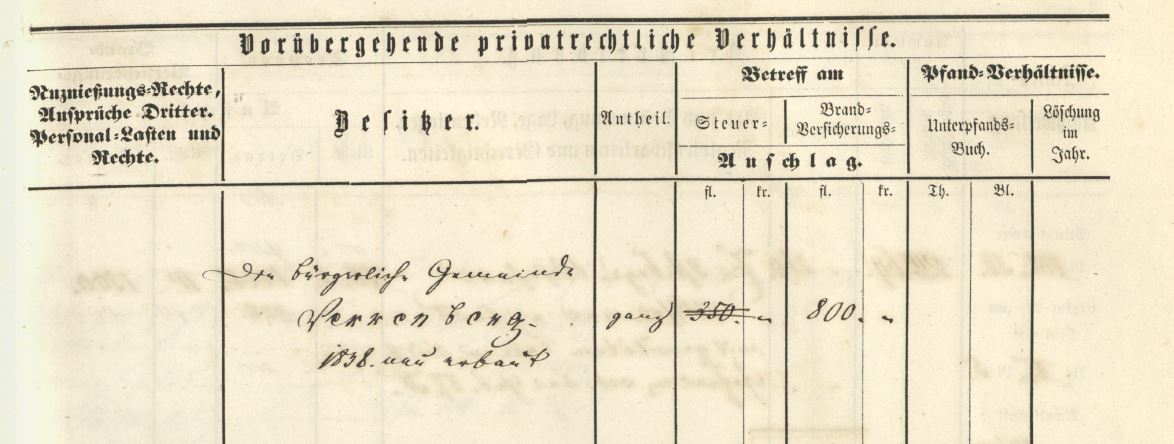 Vorübergehende privatrechtliche Verhältnisse.
Nuznießungs-Rechte,
Ansprüche Dritter.
Personal-Lasten und
Rechte.
Besitzer.
Antheil.
Betreff am
Steuer-
Brand-
Versicherungs-
Anschlag.
Pfand-Verhältnisse.
Unterpfands-
Buch.
Löschung
im
Jahr.
fl. kr. fl. kr. Th. Bl.
Die bürgerliche Gemeinde
Verrenberg. ganz 350. „ 800. „
1838. neu erbaut